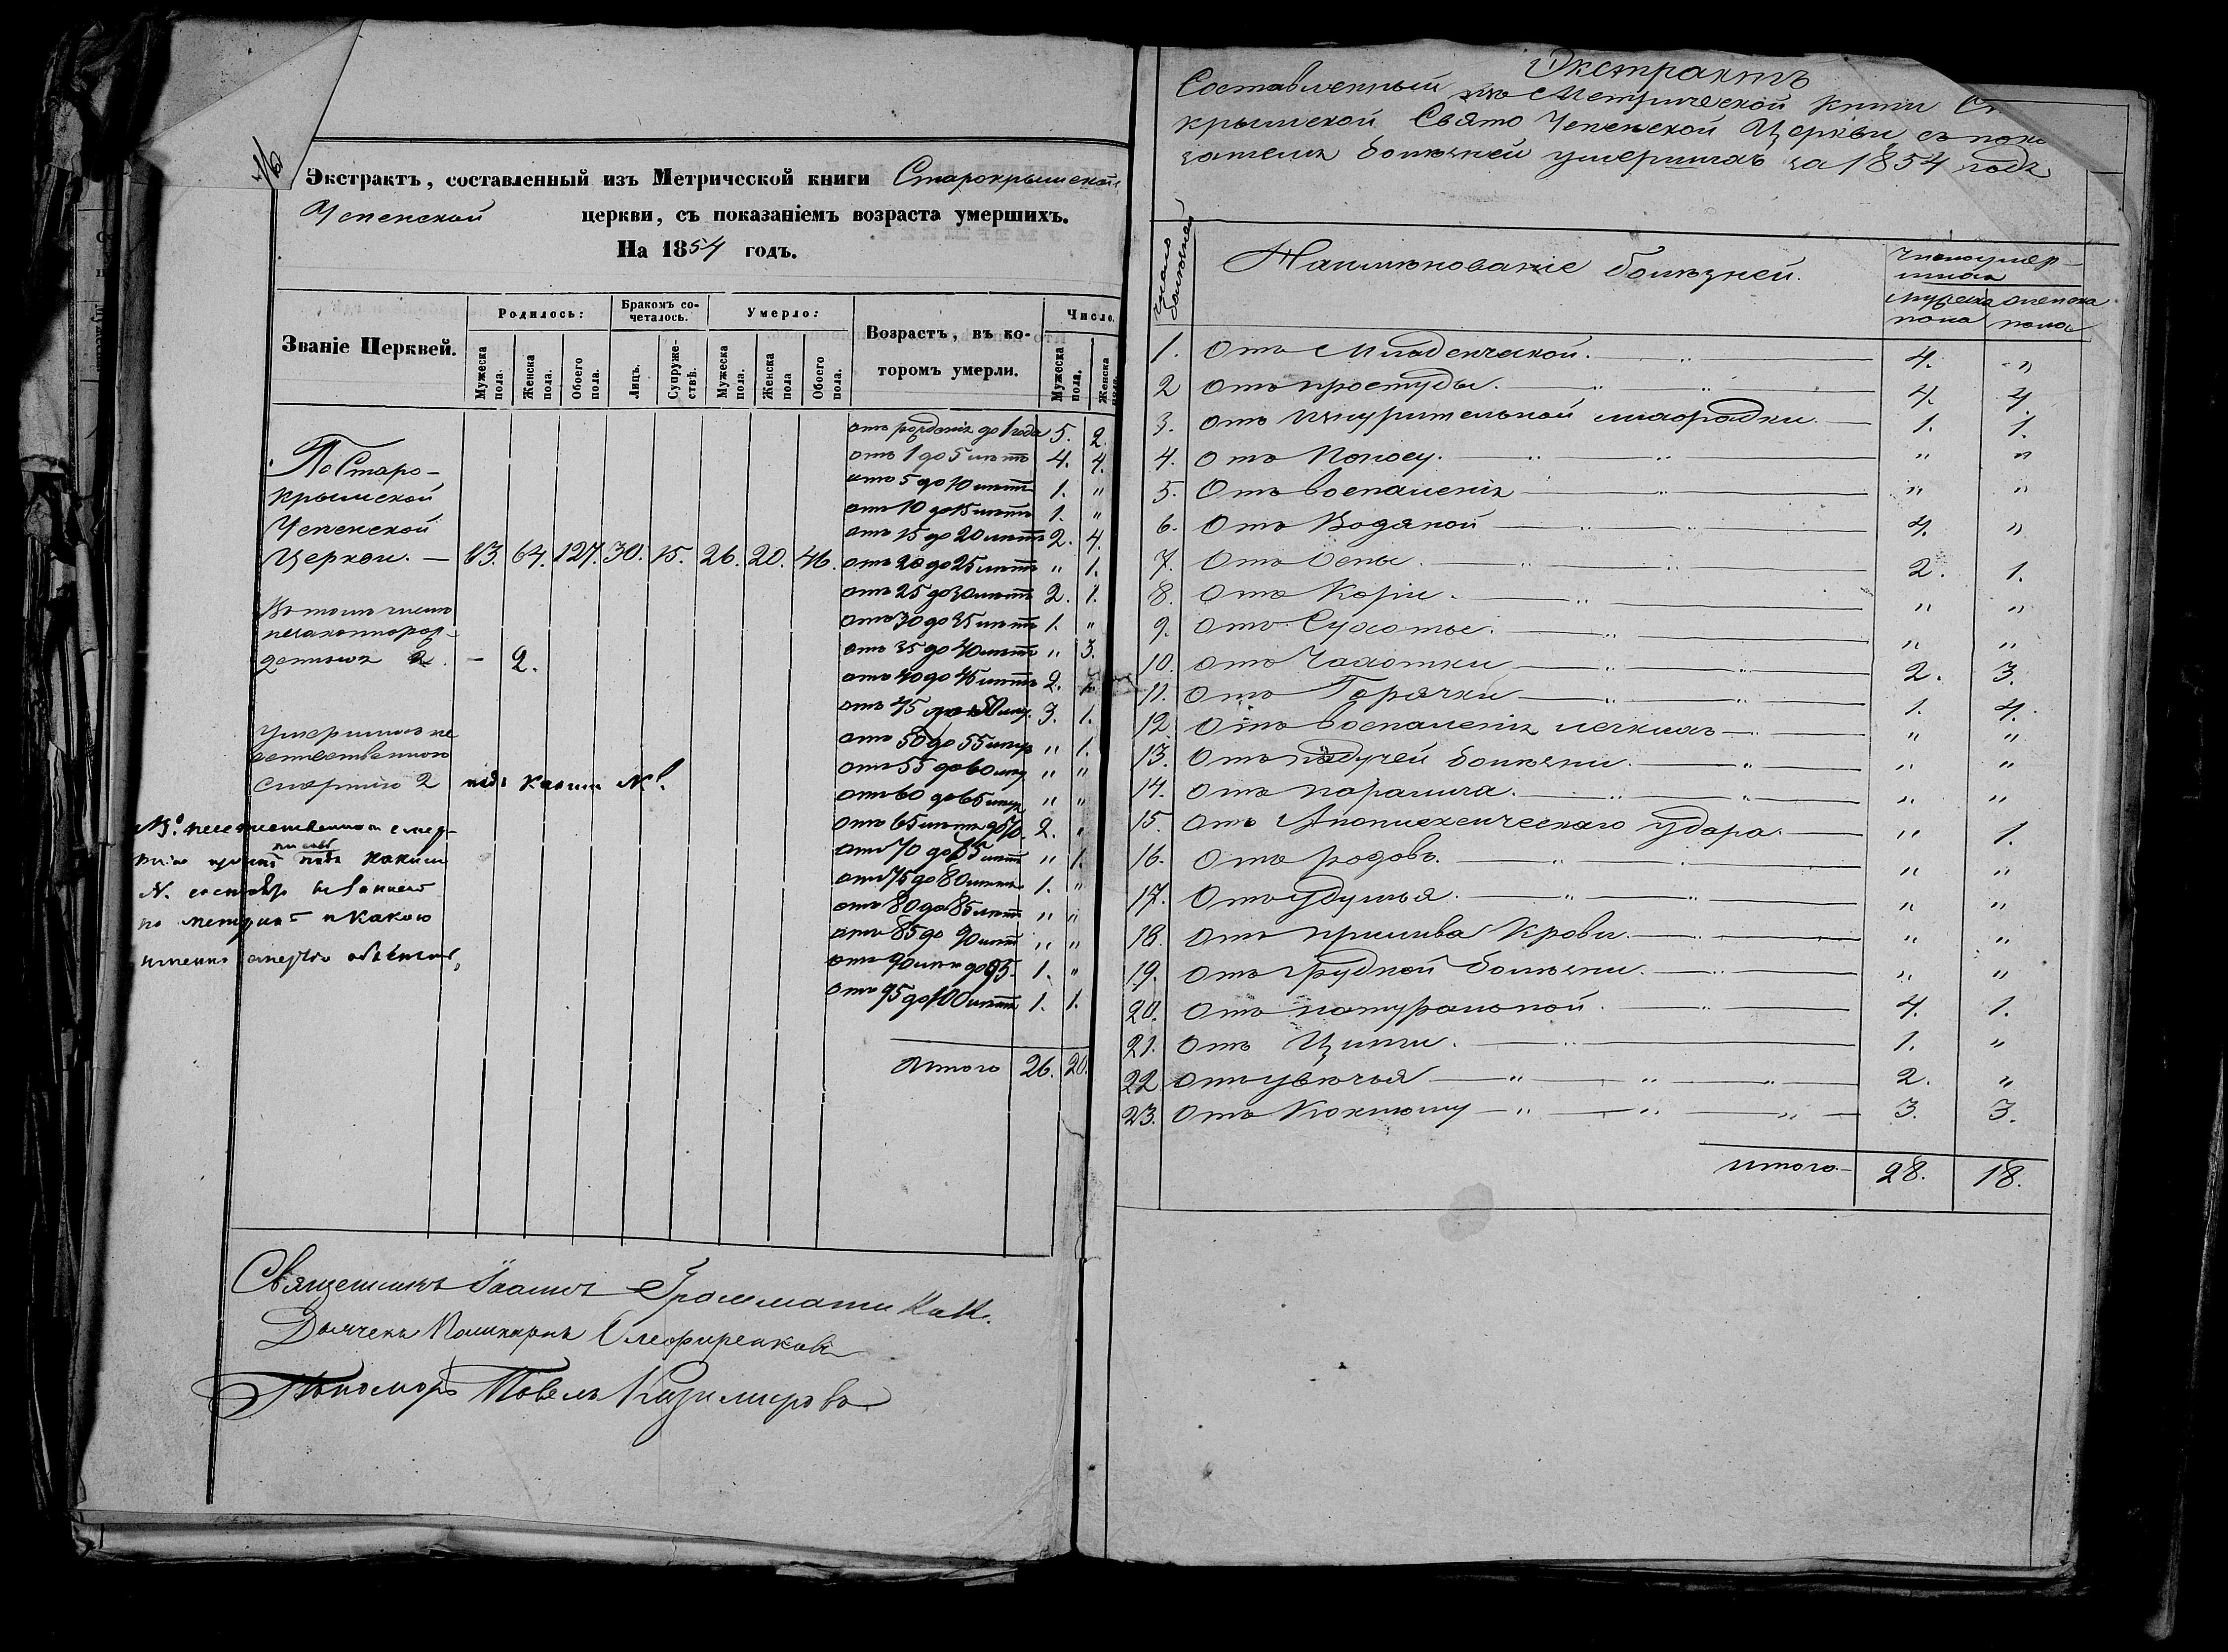 46
Экстрактъ, составленный изъ Метрической книги Старокрымской
Успенской церкви, съ показаніемъ возраста умершихъ.
На 1854 годъ.
Званіе Церквей.
Родилось:
Бракомъ со-
четалось.
Умерло:
Возрастъ, въ ко-
торомъ умерли.
Число.
Мужеска пола.
Женска пола.
Обоего пола.
Лицъ.
Супруже-
ствъ.
Мужеска пола.
Женска пола
Обоего пола.
Мужеска пола.
Женска
По Старо-
крымской
Успенской
Церкви. — 63. 64. 127. 30. 15. 26. 20. 46.
Въ томъ числѣ
незаконнорож-
денныхъ 2. — 2.
Умершихъ не
естественною
смертію 2 подъ какими №!
отъ рожденія до 1 года 5. 2.
отъ 1 до 5 лѣтъ 4. 4.
отъ 5 до 10 лѣтъ 1. "
отъ 10 до 15 лѣтъ 1. "
отъ 15 до 20 лѣтъ 2. 4.
отъ 20 до 25 лѣтъ " 1.
отъ 25 до 30 лѣтъ 2. 1.
отъ 30 до 35 лѣтъ 1. "
отъ 35 до 40 лѣтъ " 3.
отъ 40 до 45 лѣтъ 2.
отъ 45 до 50 3. 1.
отъ 50 до 55 " 1.
отъ 55 до 60 " "
отъ 60 до 65 " "
отъ 65 лѣтъ до 70. 2. "
отъ 70 до 75 лѣтъ " 1.
отъ 75 до 80 лѣтъ 1. "
отъ 80 до 85 лѣтъ " "
отъ 85 до 90 лѣтъ " "
отъ 90 лѣтъ до 95. 1. "
отъ 95 до 100 лѣтъ 1. 1.
Итого 26. 20.
Священникъ Іоаннъ Грамматикаки.
Дьячекъ Поликарпъ
Пономарь Павелъ Казимировъ
Экстрактъ
Составленный изъ Метрической книги Ст
крымской Свято Успенской Церкви, съ пока
зателемъ болѣзней умершихъ за 1854 годъ
Число болѣзней
Наименованіе болѣзней.
Число умер-
шихъ
мужеска пола
женска пола
1. Отъ Младенческой. 4. "
2 Отъ простуды. 4. 4.
3. Отъ изнурительной лихорадки. 1. 1.
4. Отъ Поносу. " "
5. Отъ воспаленія " "
6. Отъ Водяной 4. "
7. Отъ Оспы. 2. 1.
8. Отъ Кори. " "
9. Отъ Сухоты. " "
10. Отъ Чахотки 2. 3.
11. Отъ Горячки 1. 4.
12. Отъ воспаленія легкихъ " "
13. Отъ падучей болѣзни. " "
14. Отъ паралича. " "
15. Отъ Апоплексическаго удара. " 1.
16. Отъ родовъ. " "
17. Отъ удушья. " "
18. Отъ прилива крови. " "
19. Отъ грудной болѣзни. " "
20. Отъ натуральной. 4. 1.
21. Отъ Цинги. 1. "
22 Отъ увѣчья 2. "
23. Отъ Коклюшу 3. 3.
Итого 28. 18.